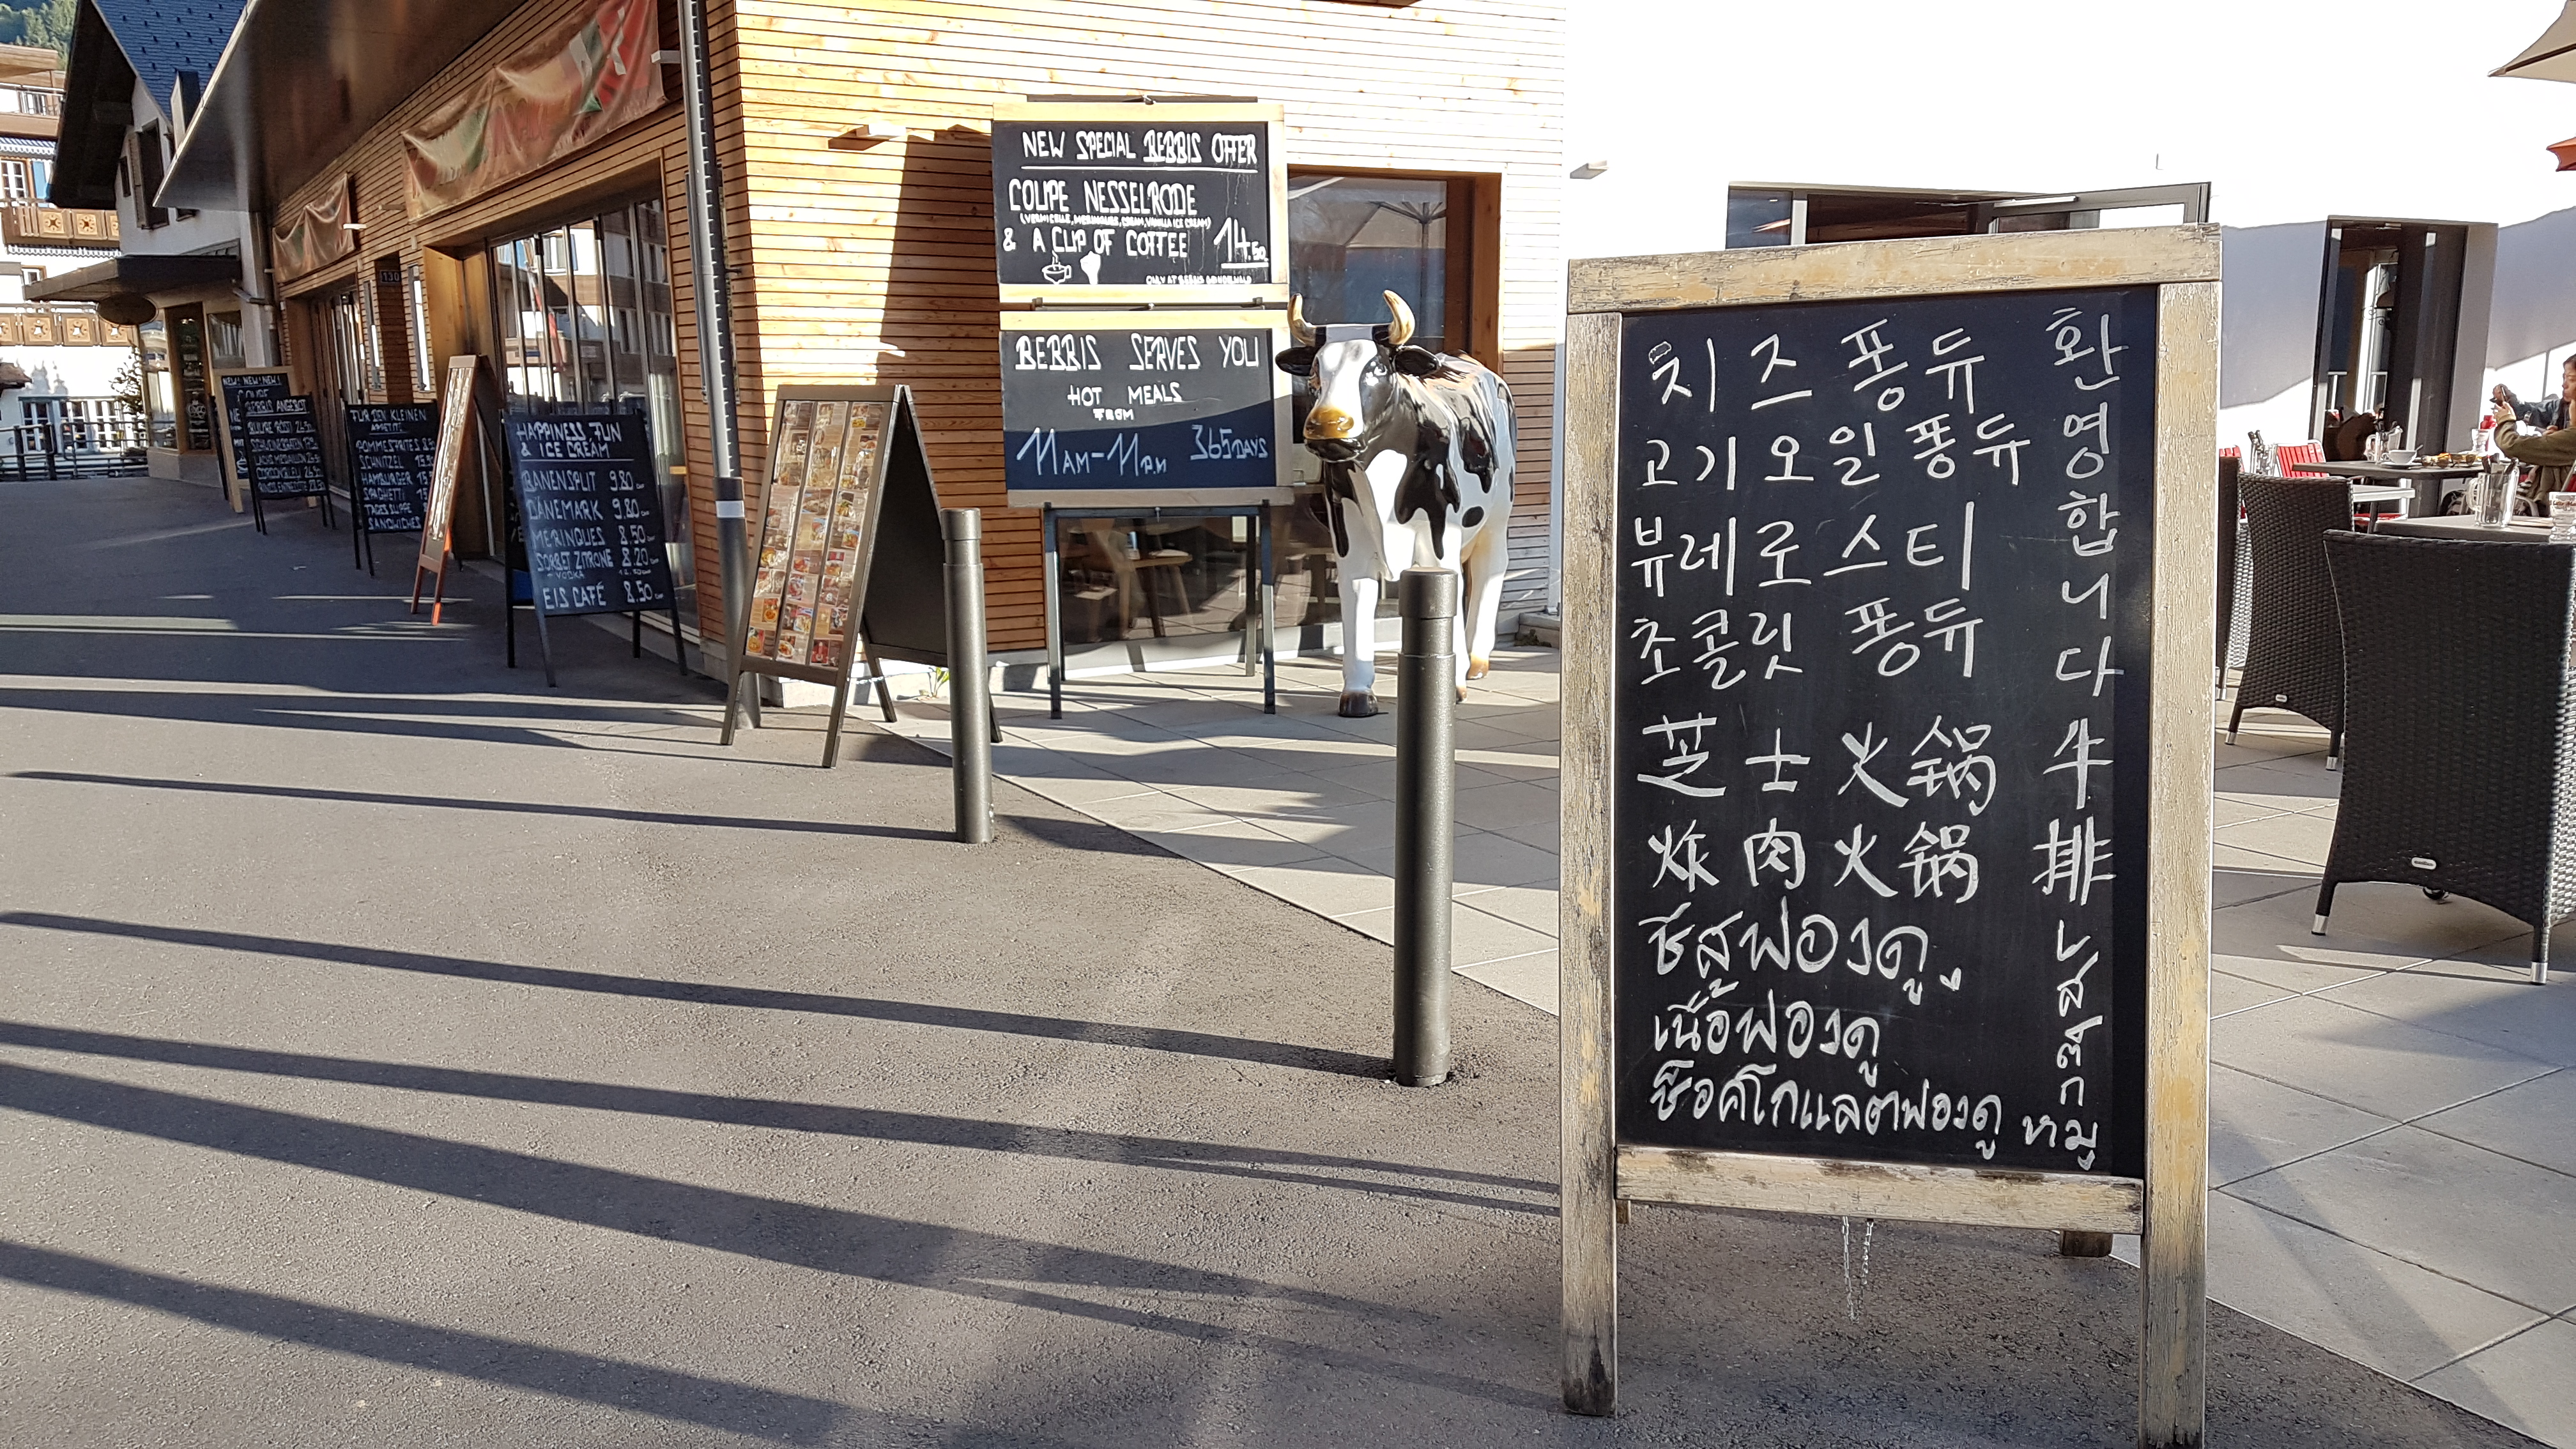 NEW SPECIAL BEBBIS OFFER
COUPE NESSELRODE
(VERMICELLE, MERINGUES, CREAM, VANILLA ICE CREAM)
& A CUP OF COFFEE 14.50
ONLY AT BEBBIS
BEBBIS SERVES YOU
HOT MEALS
FROM
11AM-11PM 365DAYS
NEW! NEW! NEW!
BEBBIS ANGEBOT
FÜR DEN KLEINEN
APPETIT
POMMES FRITES
SCHNITZEL
HAMBURGER
SPAGHETTI
TAGESSUPPE
SANDWICHES
HAPPINESS, FUN
& ICE CREAM
BANENSPLIT 9.80
DÄNEMARK 9.80
MERINGUES 8.50
SORBET ZITRONE 8.20
+ VODKA
EIS CAFÉ 8.50
130
치즈 퐁듀
고기오일 퐁듀
뷰레로스티
초콜릿 퐁듀
芝士火锅
炸肉火锅
ชีสฟองดู
เนื้อฟองดู
ช็อคโกแลตฟองดู
환영합니다
牛排
หมู